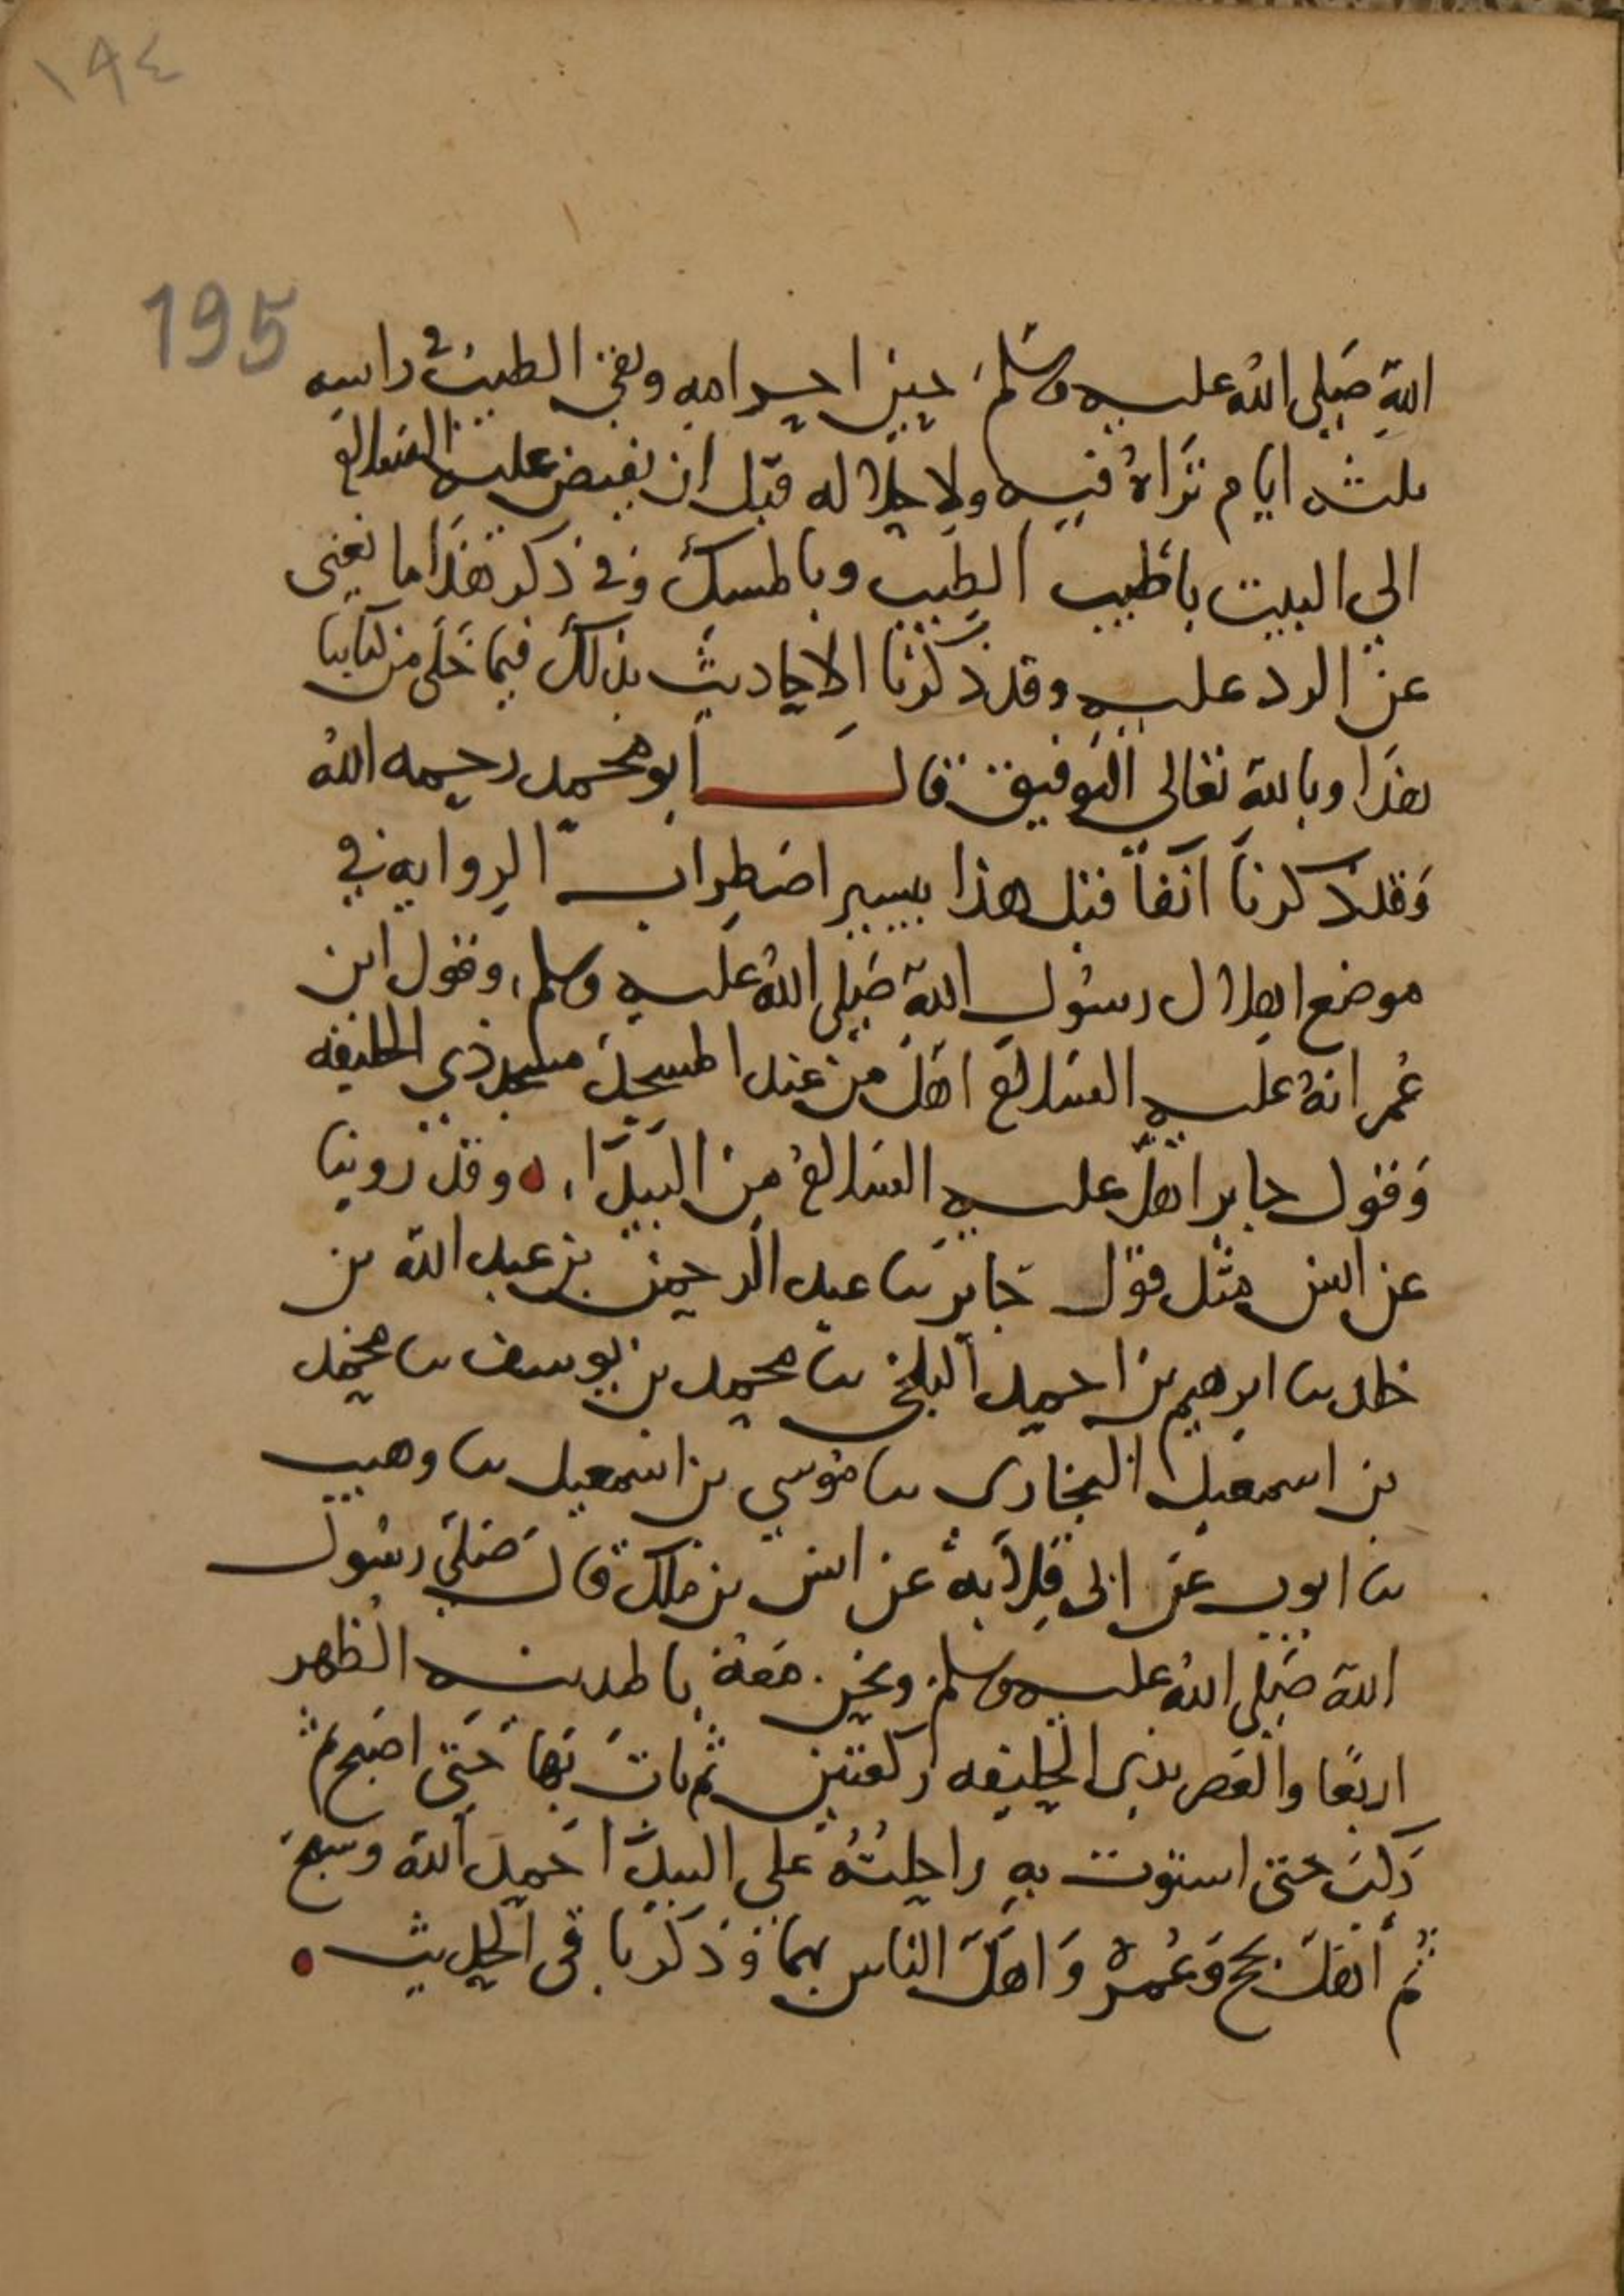 ١٩٤
195
الله صَلى اللهُ عليه وسَلم حين احرامه وبقي الطيب في راسه
ثلثه ايام تَراهُ فيه ولاحلاله قبل ان يفيض عليه السلام
الى البيت باطيب الطِيب وبالمسك وفي ذكر هذا ما يغنى
عن الرد عليه وقد ذكرنا الاحاديث بذلك فيما خَلَى من كتابنا
هذا وبالله تعالى التوفيق قال ابو محمد رحمه الله
وَقد ذكرنا آنفاً قبل هذا بيسير اضطِراب الرِوايه في
موضع اهلال رسُول الله صَلى اللهُ عليه وسلم وقول ابن
عُمر انهُ عليه السلام اهَلَ من عند المسجد مسجد ذي الحليفه
وَقول جابر اهلّ عليه السلام من البَيدَا وقد روينا
عن انس مثل قول جَابر نا عبد الرحمن بن عبد الله بن
خلد نا ابرهيم بن احمد البلخى نا محمد بن يوسف نا محمد
بن اسمعيل البخارى نا مُوسى بن اسمعيل نا وهيب
نا ايوب عن ابى قِلاَبهُ عن انس بن ملك قال صَلى رسُول
الله صَلى اللهُ عليه وسلم ونحن معهُ بالمدينه الظهر
اربعًا والعَصر بذى الحليفه ركعتين ثم باتَ بها حَتى اصبح ثم
رَكبَ حتى استوت به راحِلتُهُ على البيدَا حَمِدَ الله وسبحَ
ثم أهلَّ بحج وَعُمرة وَاهَلَّ الناس بهما وذكر باقى الحديث